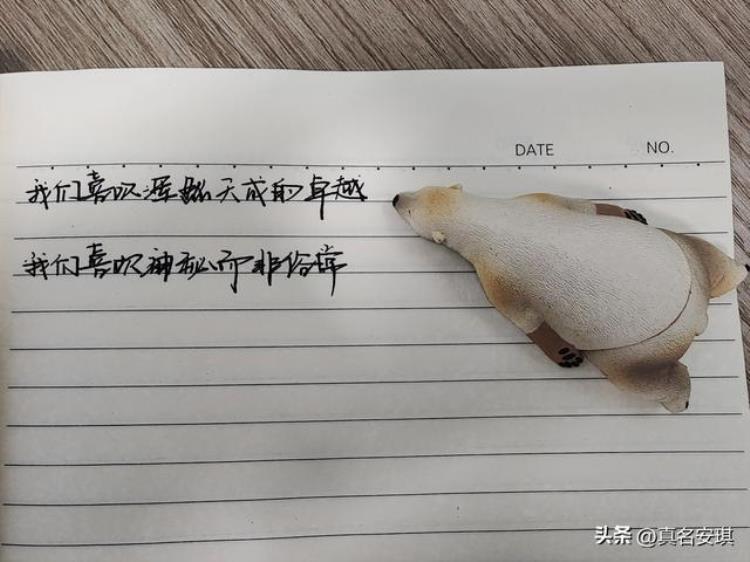 DATE
NO.
我们喜欢浑然天成的卓越
我们喜欢神秘而非俗常
头条 @真名安琪